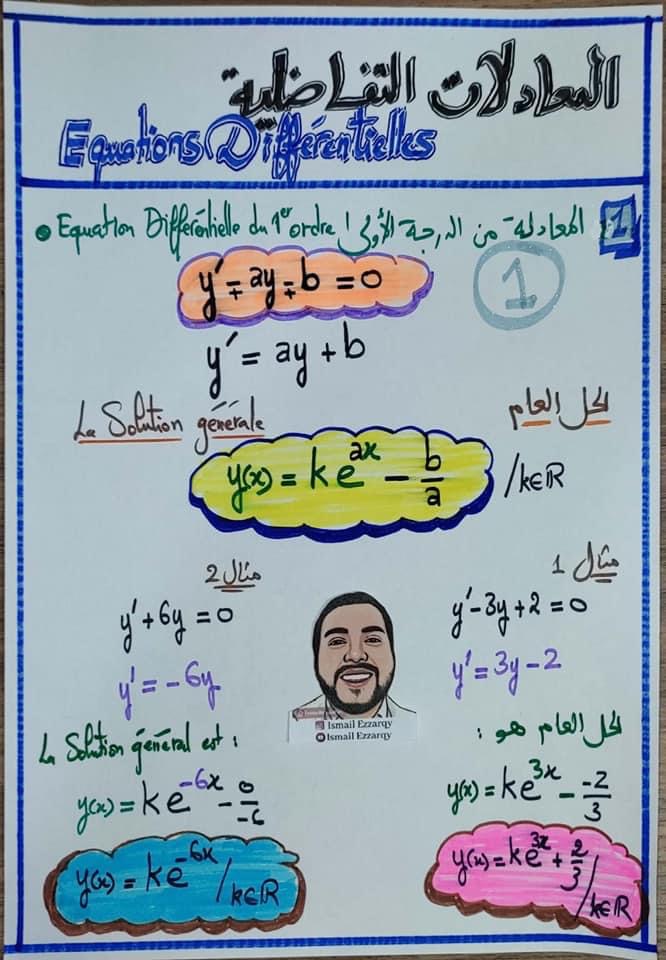 المعادلات التفاضلية
Equations Différentielles
1 المعادلة من الدرجة الأولى / Equation Différentielle du 1er ordre
y' ∓ ay ∓ b = 0
1
y' = ay + b
La Solution générale
الحل العام
y(x) = k e^{ax} - b/a /k∈ℝ
مثال 1
y' - 3y + 2 = 0
y' = 3y - 2
الحل العام هو :
y(x) = k e^{3x} - -2/3
y(x) = k e^{3x} + 2/3 /k∈ℝ
مثال 2
y' + 6y = 0
y' = -6y
La Solution général est :
y(x) = k e^{-6x} - 0/-6
y(x) = k e^{-6x} /k∈ℝ
Ismail Ezzarqy
Ismail Ezzarqy